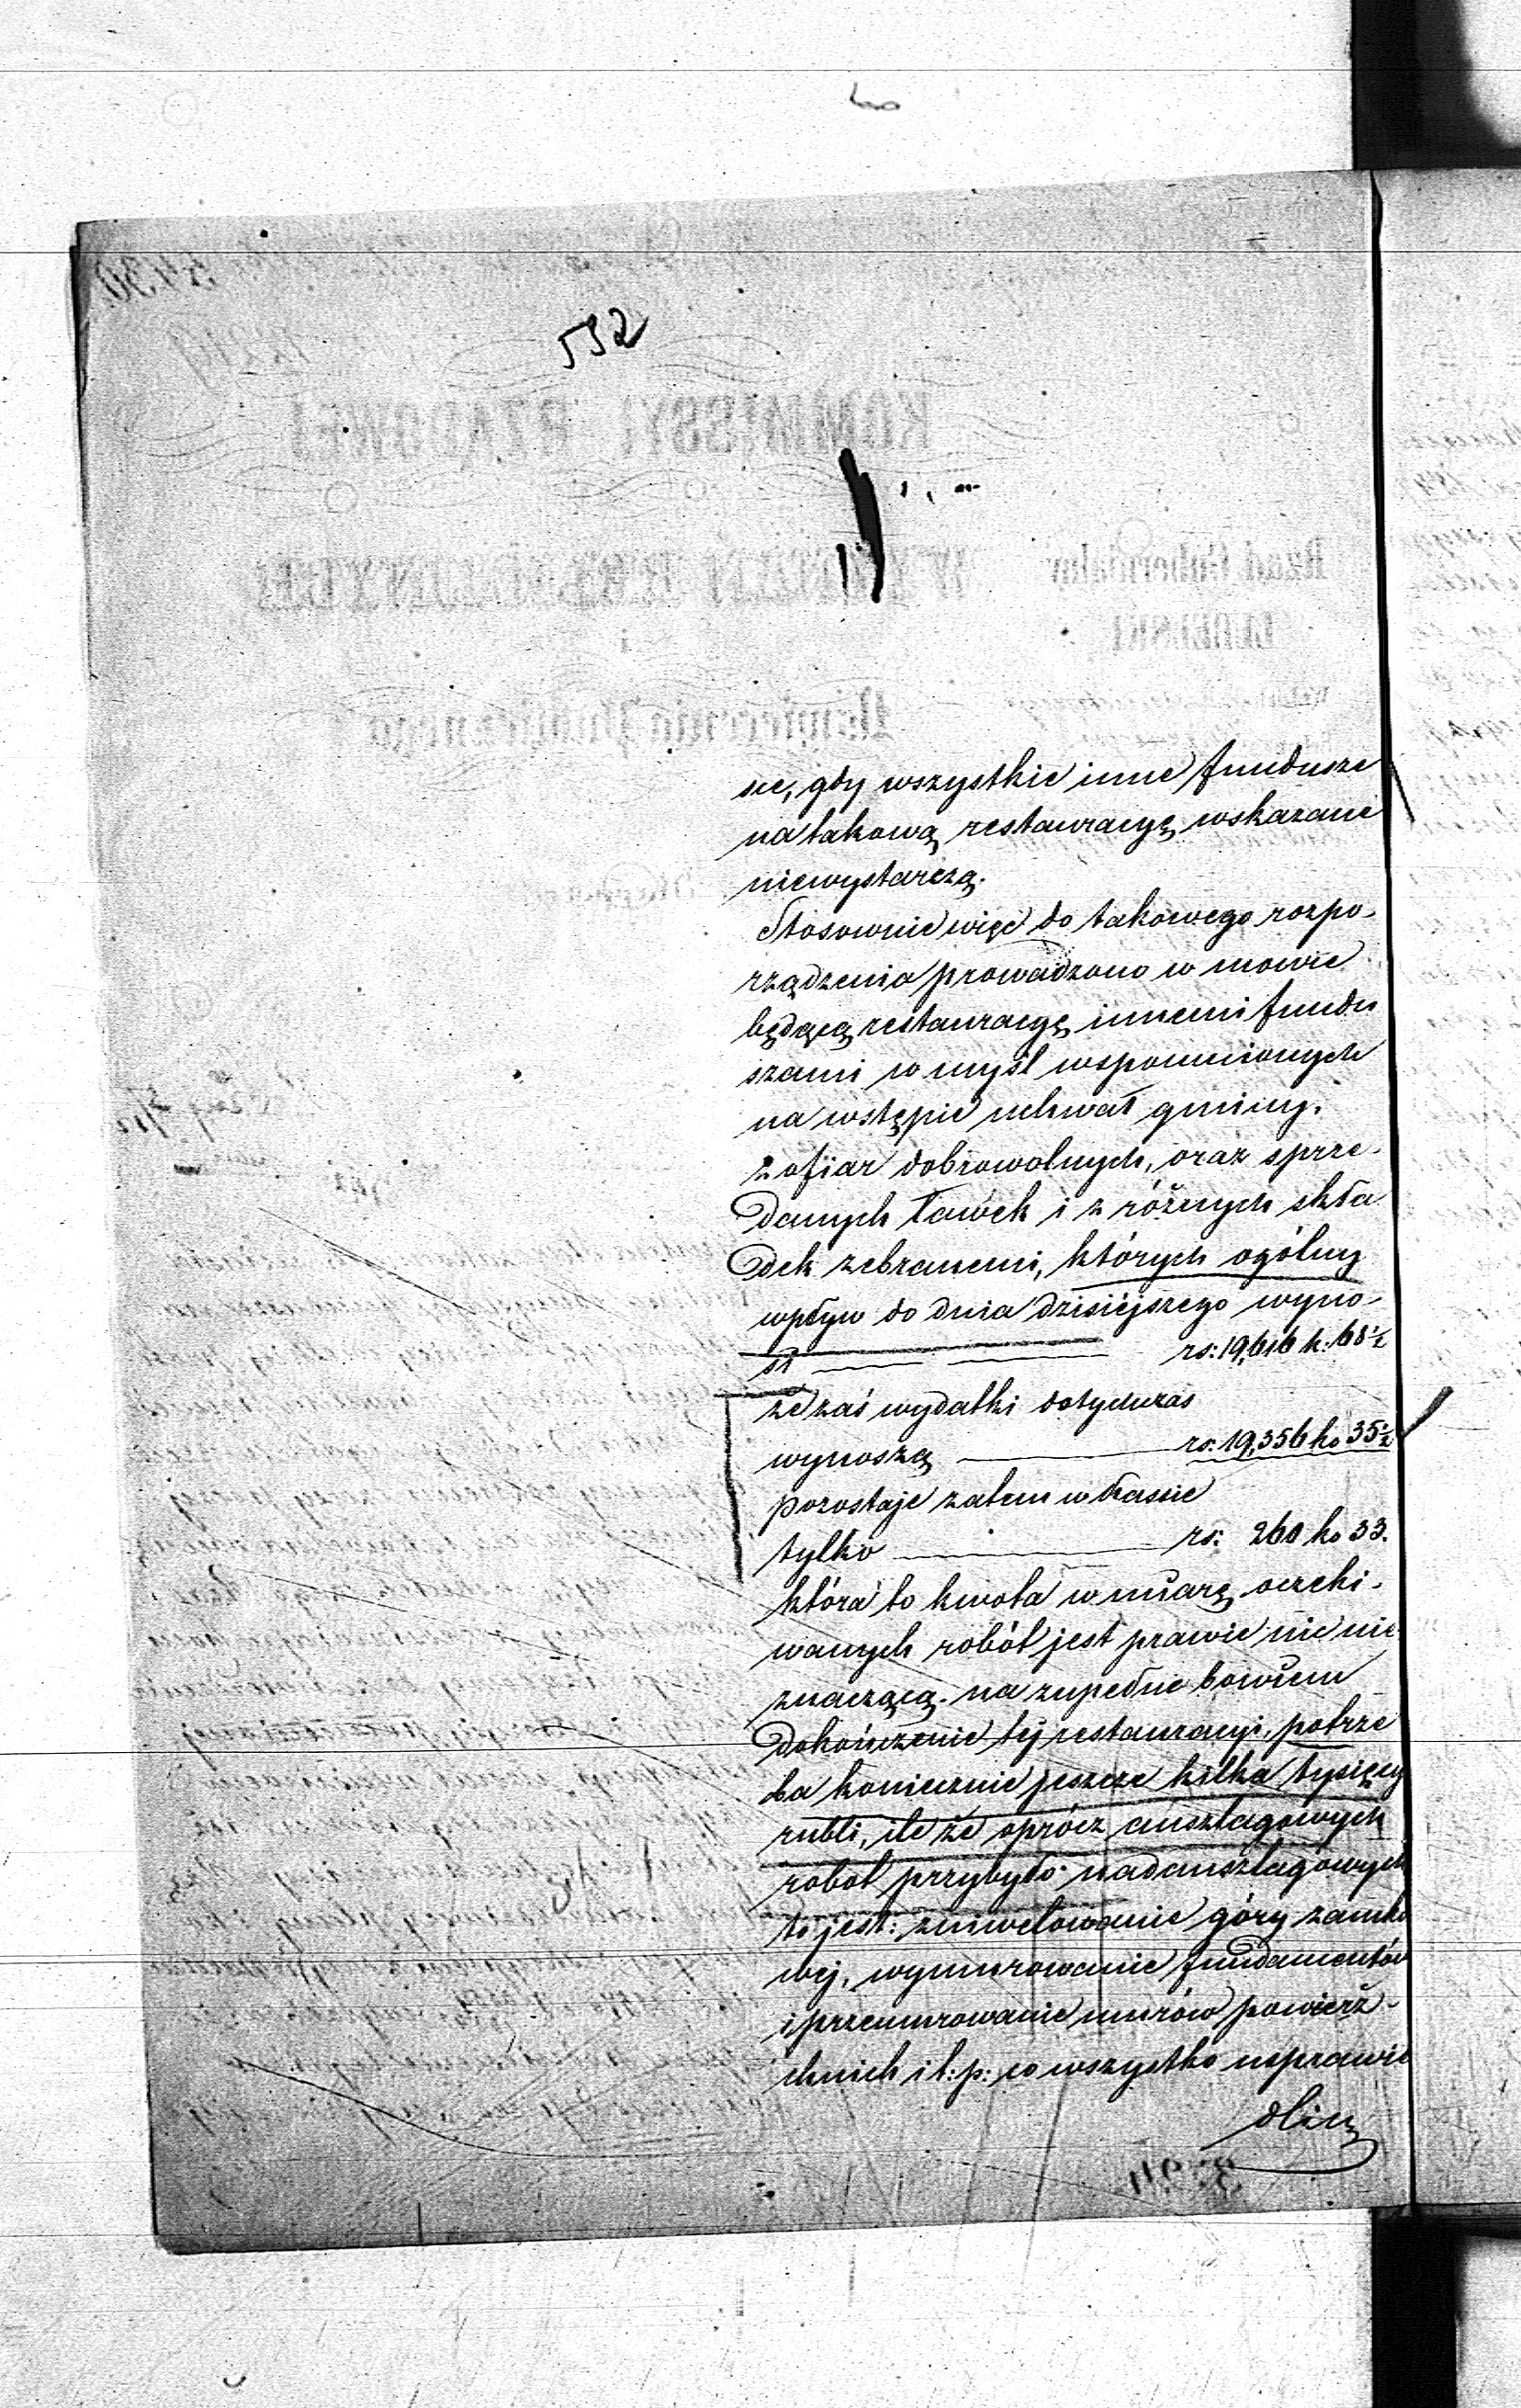 532
sie, gdy wszystkie inne fundusze
na takową restauracyę wskazane
niewystarczą.
Stosownie więc do takowego rozpo-
rządzenia prowadzono w mowie
będącą restauracyę innemi fundu
szami w myśl wspomnionych
na wstępie uchwał gminy.
z ofiar dobrowolnych, oraz sprze-
danych ławek i z różnych skła
dek zebranemi, których ogólny
wpływ do dnia dzisiejszego wyno-
si rs: 19,616 k: 68½
że zaś wydatki dotychczas
wynoszą rs: 19,356 k. 35½
pozostaje zatem w kassie
tylko rs: 260 k. 33.
która to kwota w miarę oczeki-
wanych robót jest prawie nic nie
znaczącą. na zupełne bowiem
dokończenie tej restauracyi, potrze
ba koniecznie jeszcze kilka tysięcy
rubli, ile że oprócz anszlagowych
robot przybyło nadanszlagowych
to jest: zniwelowanie góry zamko
wej, wymurowanie fundamentów
i przemurowanie murów powierz-
chnich i t: p: co wszystko usprawie
dliw